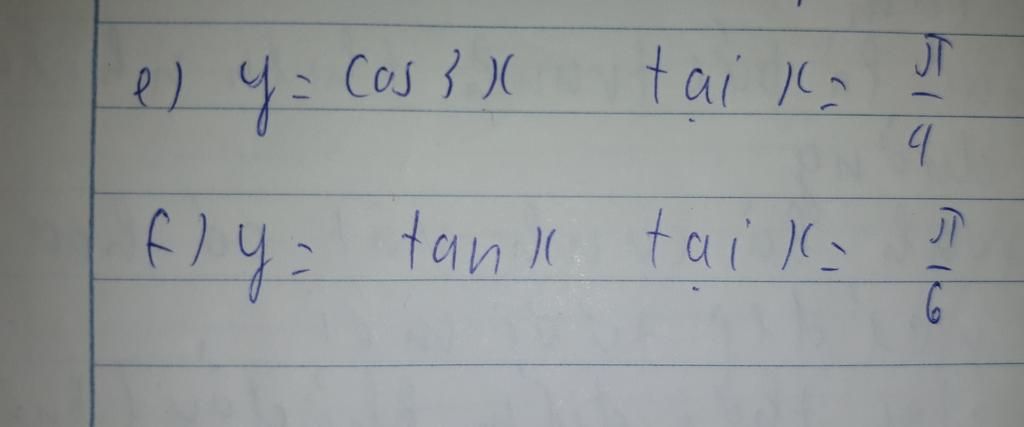 e) y = cos 3x tại x = π/4
f) y = tan x tại x = π/6